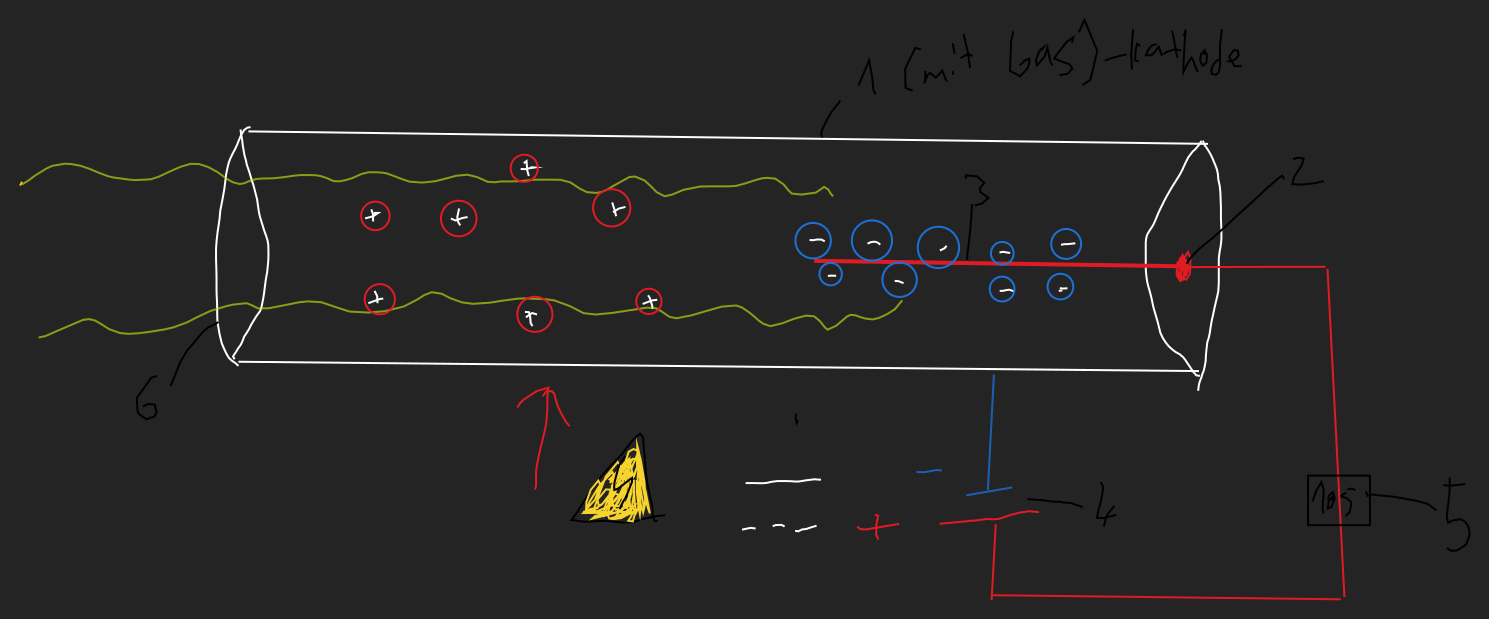 1 (mit Gas)-Kathode
2
3
+
+ + +
- - - - -
- - - -
+ + +
+
6
-
+
4
5